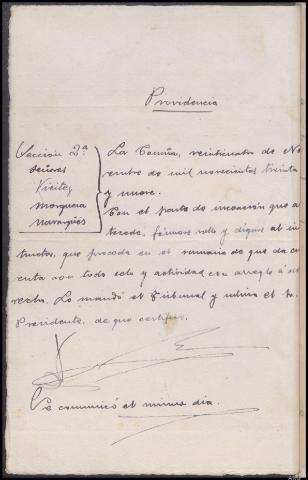 Providencia
Sección 2ª
Señores
Vicitez
Morquena
Navarqués
La Coruña, veinticuatro de No
viembre de mil novecientos treinta
y nueve.
Con el parte de incoación que an
tecede, fórmese rollo y dígase al ins
tructor, que proceda en el sumario de que da cu
enta con todo celo y actividad con arreglo á de
recho. Lo mandó el Tribunal y rubrica el Sr.
Presidente, de que certifico.
Se comunicó el mismo día.